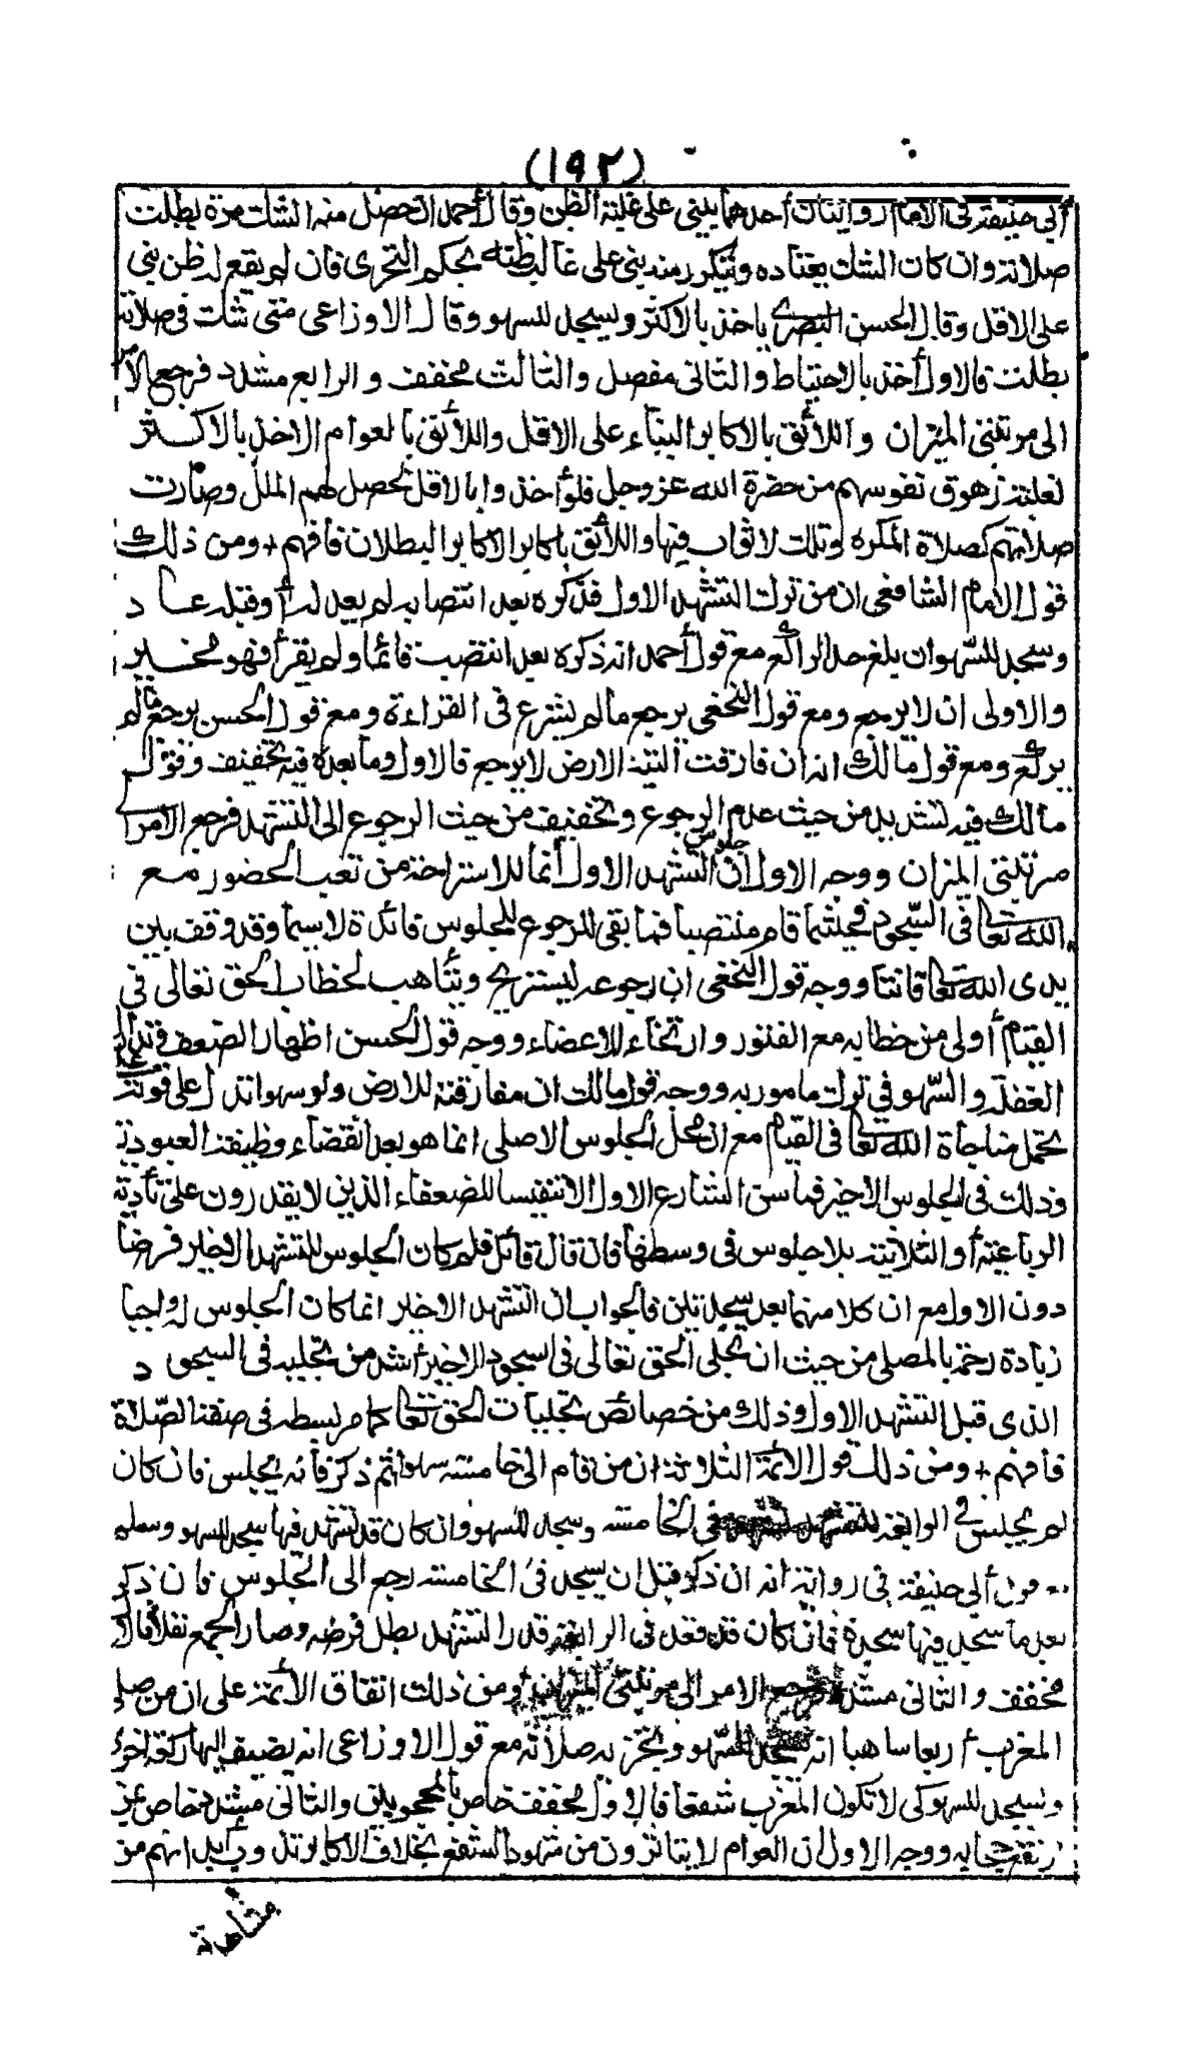 (١٩٢)
أبي حنيفة في الامام روايتان أحدهما يبني على غلبة الظن وقال أحمد ان حصل منه الشك مرة بطلت
صلاته وان كان الشك يعتاده ويتكرر منه بنى على غالب ظنه بحكم التحرى فان لم يقع له ظن بنى
على الاقل وقال الحسن البصرى ياخذ بالاكثر ويسجد للسهو وقال الاوزاعى متى شك في صلاته
بطلت فالاول أخذ بالاحتياط والثانى مفصل والثالث مخفف والرابع مشدد فرجع الأمر
الى مرتبتى الميزان واللائق بالاكابر البناء على الاقل واللائق بالعوام الاخذ بالاكثر
لغلبة زهوق نفوسهم من حضرة الله عز وجل فلو أخذوا بالاقل لحصل لهم الملل وصارت
صلاتهم كصلاة المكره وتلك لا ثواب فيها واللائق باكابر الاكابر البطلان فافهم + ومن ذلك
قول الامام الشافعى ان من ترك التشهد الاول فذكره بعد انتصابه لم يعد له أو قبله عاد
وسجد للسهو ان بلغ حد الراكع مع قول أحمد انه ذكره بعد انتصب قائما ولم يقرأ فهو مخير
والاولى ان لا يرجع ومع قول النخعى يرجع مالم يشرع فى القراءة ومع قول الحسن يرجع مالم
يركع ومع قول مالك انه ان فارقت اليته الارض لا يرجع فالاول وما بعده فيه تخفيف وقول
مالك فيه تشديد من حيث عدم الرجوع وتخفيف من حيث الرجوع الى التشهد فرجع الامر ا
مرتبتى الميزان ووجه الاول ان جلوس التشهد الاول أنما للاستراحة من تعب الحضور مع
الله تعالى فى السجود فحيثما قام منتصبا فما بقى للرجوع للجلوس فائدة لاسيما وقد وقف بين
يدى الله تعالى قانتا ووجه قول النخعى ان رجوعه ليستريح ويتأهب لخطاب الحق تعالى فى
القيام أولى من خطابه مع الفتور وارتخاء للاعضاء ووجه قول الحسن اظهار الضعف وتدارك
الغفلة والسهو في ترك مامور به ووجه قول مالك ان مفارقته للارض ولو سهوا تدل على قوته
تحمل مناجاة الله تعالى فى القيام مع ان محل الجلوس الاصلى انما هو بعد انقضاء وظيفة العبودية
وذلك فى الجلوس الاخير فما سن الشارع الاول الا تنفيسا للضعفاء الذين لا يقدرون على تأدية
الرباعية أو الثلاثية بلا جلوس فى وسطها فان قال قائل فلم كان الجلوس للتشهد الاخير فرضا
دون الاول مع ان كلا منهما بعد سجدتين فالجواب ان التشهد الاخير انما كان الجلوس له واجبا
زيادة رحمة بالمصلى من حيث ان تجلى الحق تعالى فى السجود الاخير أشد من تجليه فى السجود
الذى قبل التشهد الاول وذلك من خصائص تجليات الحق تعالى كما مر بسطه فى صفة الصلاة
فافهم + ومن ذلك قول الأئمة الثلاثة ان من قام الى خامسة سهوا ثم ذكر فانه يجلس فان كان
لم يجلس فى الرابعة للتشهد تشهد فى الخامسة وسجد للسهو وان كان قد تشهد فيها سجد للسهو وسلم
مع قول أبى حنيفة فى رواية انه ان ذكر قبل ان يسجد فى الخامسة رجع الى الجلوس فان ذكر
بعد ما سجد فيها سجدة فان كان قد قعد فى الرابعة قدر التشهد بطل فرضه وصار الجميع نفلا فالاول
مخفف والثانى مشدد فرجع الامر الى مرتبتى الميزان ومن ذلك اتفاق الأئمة على ان من صلى
المغرب أربعا ساهيا انه يسجد للسهو ويجزيه صلاته مع قول الاوزاعى انه يضيف اليها ركعة أخرى
ويسجد للسهو كى لا تكون المغرب شفعا فالاول مخفف خاص بالمحجوبين والثانى مشدد خاص بمن
رتفع حجابه ووجه الاول ان العوام لا يتاثرون من شهود الشفع بخلاف الاكابر انهم من
مشاهدة